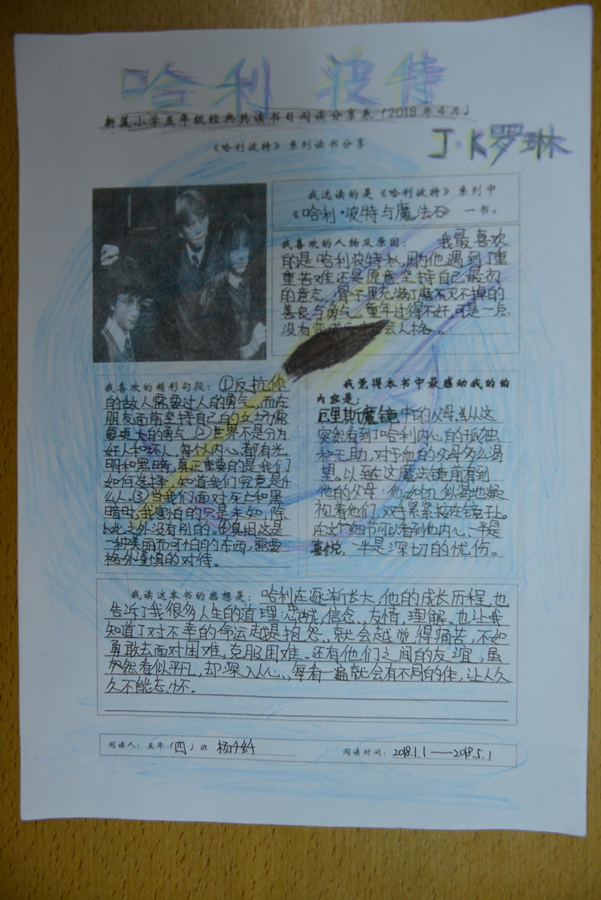 哈利 波特
新篁小学五年级经典共读书目阅读分享表（2018年4月）
J·K罗琳
《哈利波特》系列读书分享
我选读的是《哈利波特》系列中
《哈利·波特与魔法石》一书。
我喜欢的人物及原因： 我最喜欢
的是哈利波特 因为他遇到了重
重苦难还是愿意坚持自己最初
的意志，骨子里充满了磨灭不掉的
善良与勇气。童年过得不好，可是一点
没有 会人格。
我喜欢的精彩句段：①反抗你
的敌人需要过人的勇气，而在
朋友面前坚持自己的立场，需
要更大的勇气。②世界不是分为
好人和坏人，每个人内心都有光
明和黑暗，真正重要的是我们
如何选择，知道我们究竟是什
么人。③当我们面对死亡和黑
暗时，我害怕的只是未知，除
此之外没有别的。④真相这是
一种美丽而可怕的东西，需要
格外谨慎的对待。
我觉得本书中最感动我的的
内容是：
厄里斯魔镜中的父母，从这
突然看到了哈利内心的孤独
和无助，对于他的父母多么渴
望。以至在这魔法镜前看到
他的父母，他如饥似渴地凝
视着他们，双手紧紧按在镜子上。
在这个细节可以看到他内心，一半是
喜悦，一半是深切的忧伤。
我读这本书的感想是：哈利在逐渐长大，他的成长历程，也
告诉了我很多人生的道理：忠诚，信念、友情，理解。也让我
知道了对不幸的命运越是抱怨，就会越觉得痛苦，不如
勇敢去面对困难，克服困难。还有他们之间的友谊，虽
突然看似平凡，却深入人心、每看一遍就会有不同的体，让人久
久不能忘怀。
阅读人：五年（四）班 杨
阅读时间：2018.1.1——2018.5.1